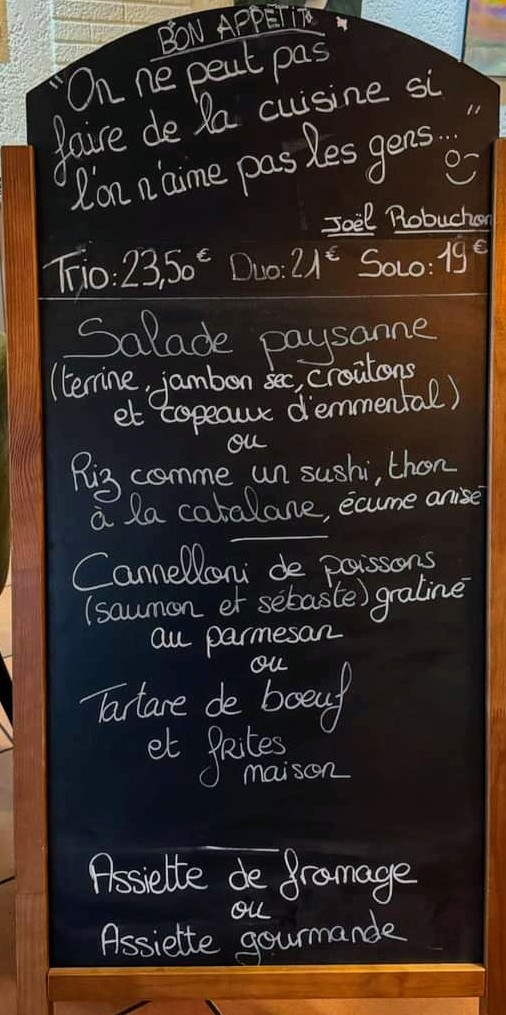 BON APPETIT
"On ne peut pas
faire de la cuisine si
l'on n'aime pas les gens..."
Joël Robuchon
Trio: 23,50€ Duo: 21€ Solo: 19€
Salade paysanne
(terrine, jambon sec, croûtons
et copeaux d'emmental)
ou
Riz comme un sushi, thon
à la catalane, écume anisé
Cannelloni de poissons
(saumon et sébaste) gratiné
au parmesan
ou
Tartare de boeuf
et frites
maison
Assiette de fromage
ou
Assiette gourmande